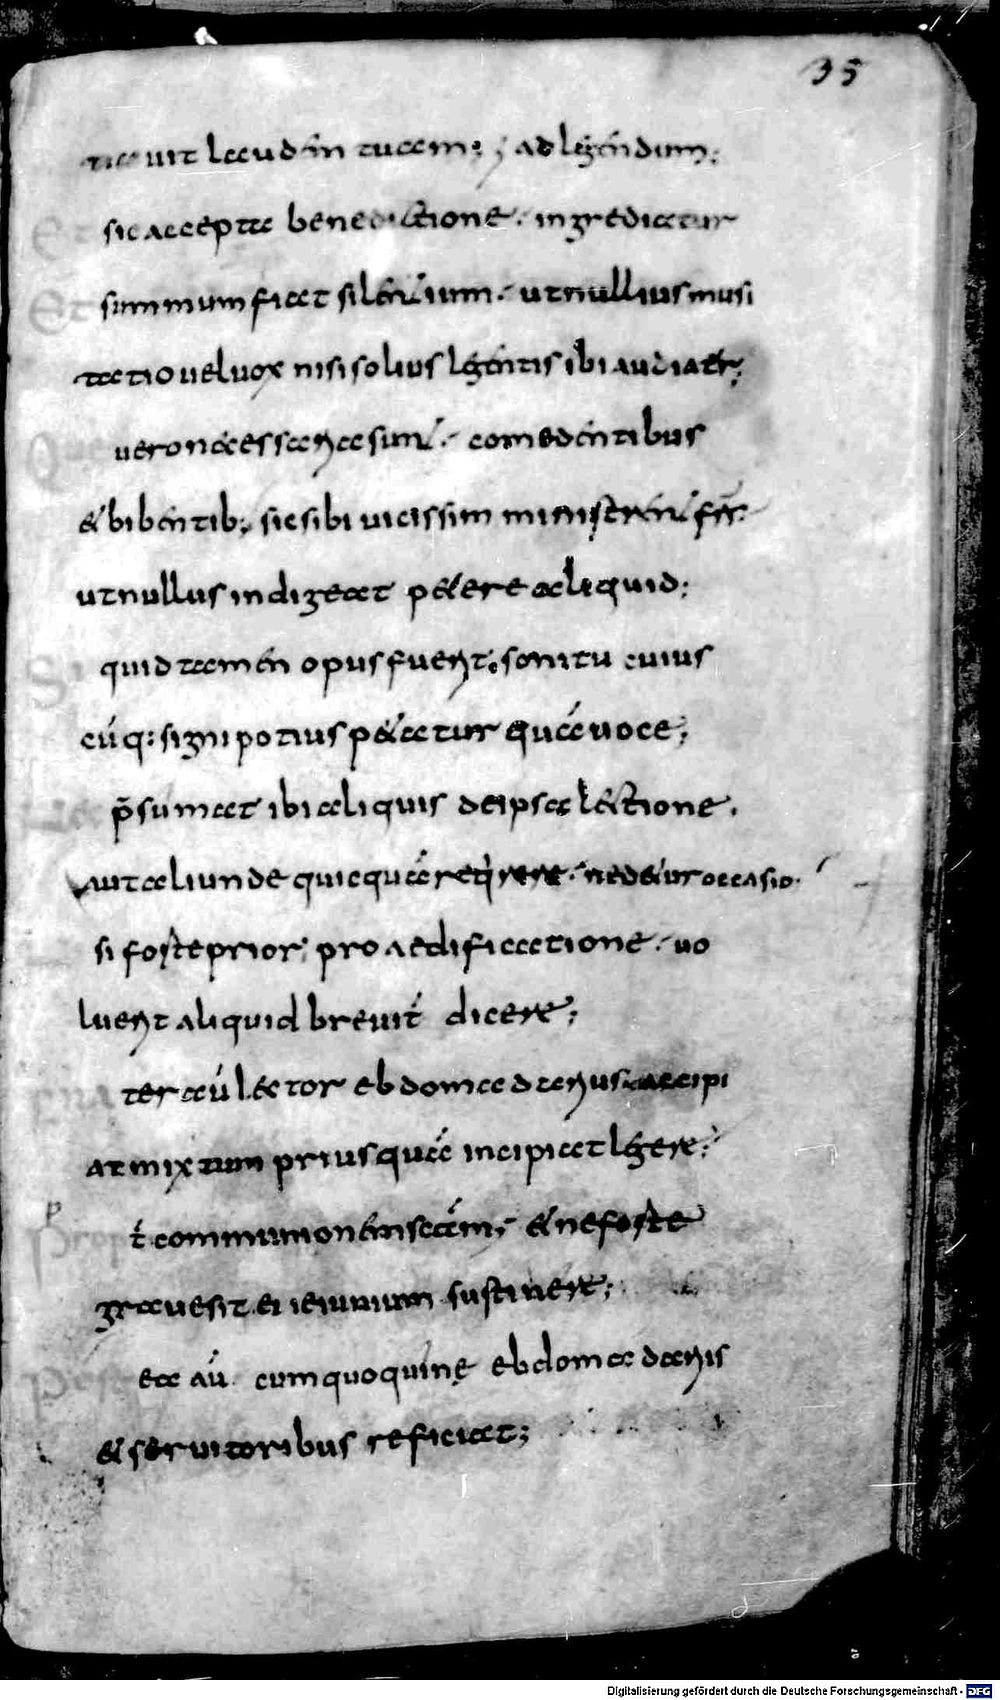 35
tiauit laudem tuam; ; ad legendum;
Et sic accepta benedictione. ingrediatur
Et summum fiat silentium. ut nullius musi
tatio uel uox nisi solius legentis ibi audiatur;
Quae uero necessaria sunt. comedentibus
& bibentib; sic sibi uicissim ministrent frs.
ut nullus indigeat petere aliquid;
Si quid tamen opus fuerit. sonitu cuius
cumq: signi potius petatur quam uoce;
Nec p̄sumat ibi aliquis de ipsa lectione.
aut aliunde quicquam requirere. ne detur occasio.
si forte prior; pro aedificatione. uo
luerit aliquid breuiter dicere;
Frater aū lector ebdomadarius. accipi
at mixtum priusquam incipiat legere;
p
Propt̄ communionem scam; & ne forte
graue sit ei ieiunium sustinere;
Postea aū. cum quoquinę ebdomadariis
& seruitoribus reficiat;
Digitalisierung gefördert durch die Deutsche Forschungsgemeinschaft - DFG